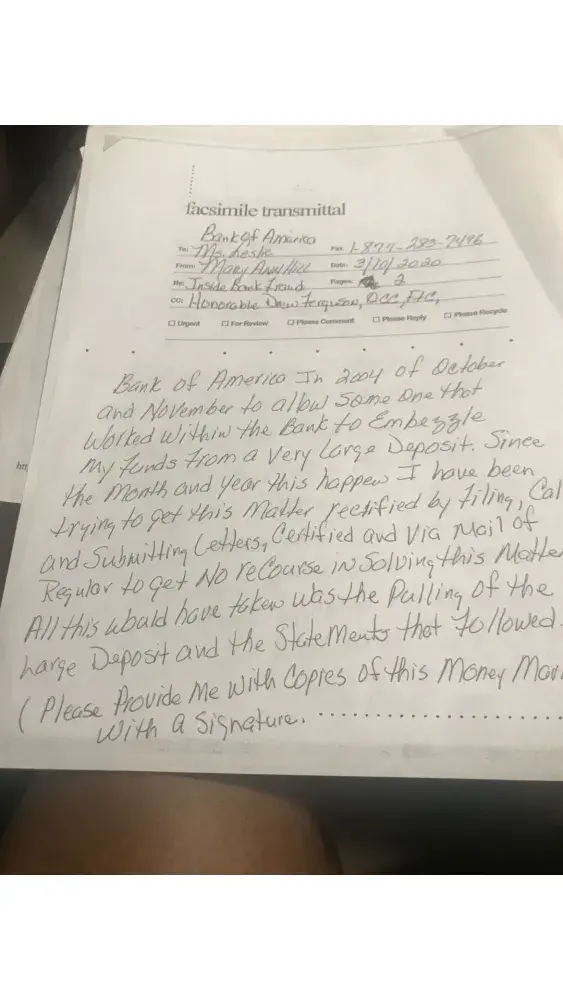 facsimile transmittal
Bank of America
To: Ms. Leslie Fax: 1-877-283-7496
From: Mary Ann Hill Date: 3/10/2020
Re: Inside Bank Fraud Pages: 2
CC: Honorable Drew Ferguson, OCC, FTC,
☐ Urgent ☐ For Review ☐ Please Comment ☐ Please Reply ☐ Please Recycle
Bank of America In 2004 of October
and November to allow Some One that
Worked Within the Bank to Embezzle
My Funds From a Very Large Deposit. Since
the Month and Year this happen I have been
trying to get this Matter rectified by Filing, Cal
and Submitting Letters, Certified and Via Mail of
Regular to get No reCourse in Solving this Matte
All this would have taken was the Pulling of the
Large Deposit and the StateMents that Followed.
( Please Provide Me With Copies of this Money Mar
With a Signature.
htt